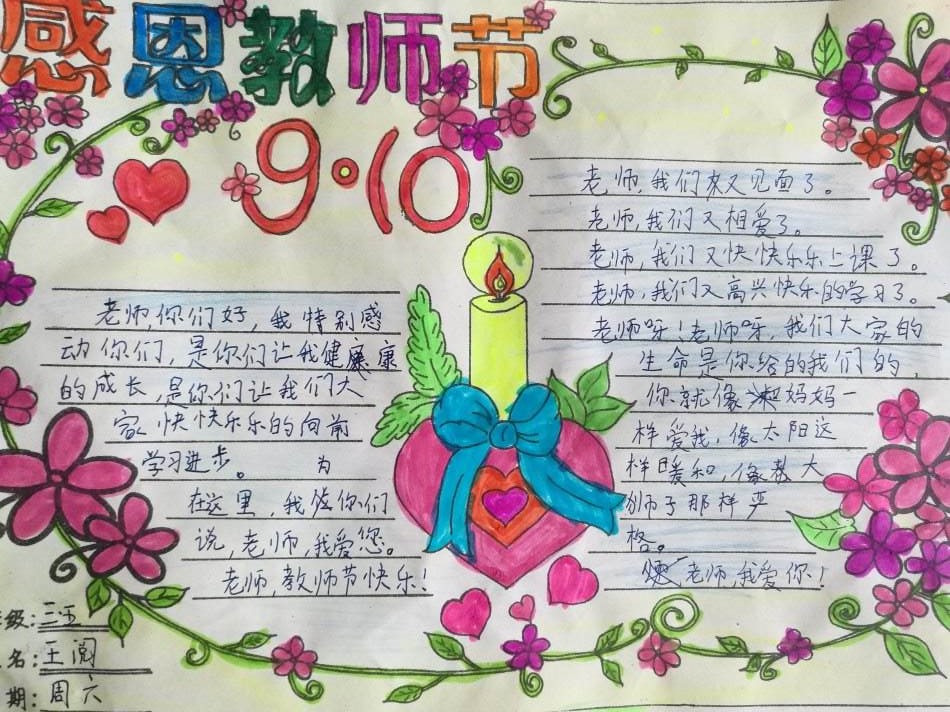 感恩教师节
9·10
老师,你们好,我特别感
动你们,是你们让我健康康
的成长,是你们让我们大
家快快乐乐的向前
学习进步。
为
在这里,我你们
说,老师,我爱您。
老师,教师节快乐!
级:三五
名:王阅
期:周六
老师,我们来又见面了。
老师,我们又相爱了。
老师,我们又快快乐乐上课了。
老师,我们又高兴快乐的学习了。
老师呀!老师呀,我们大家的
生命是你给的我们的,
你就像妈妈一
样爱我,像太阳这
样暖和,像大
狮子那样严
格。
老师,我爱你!